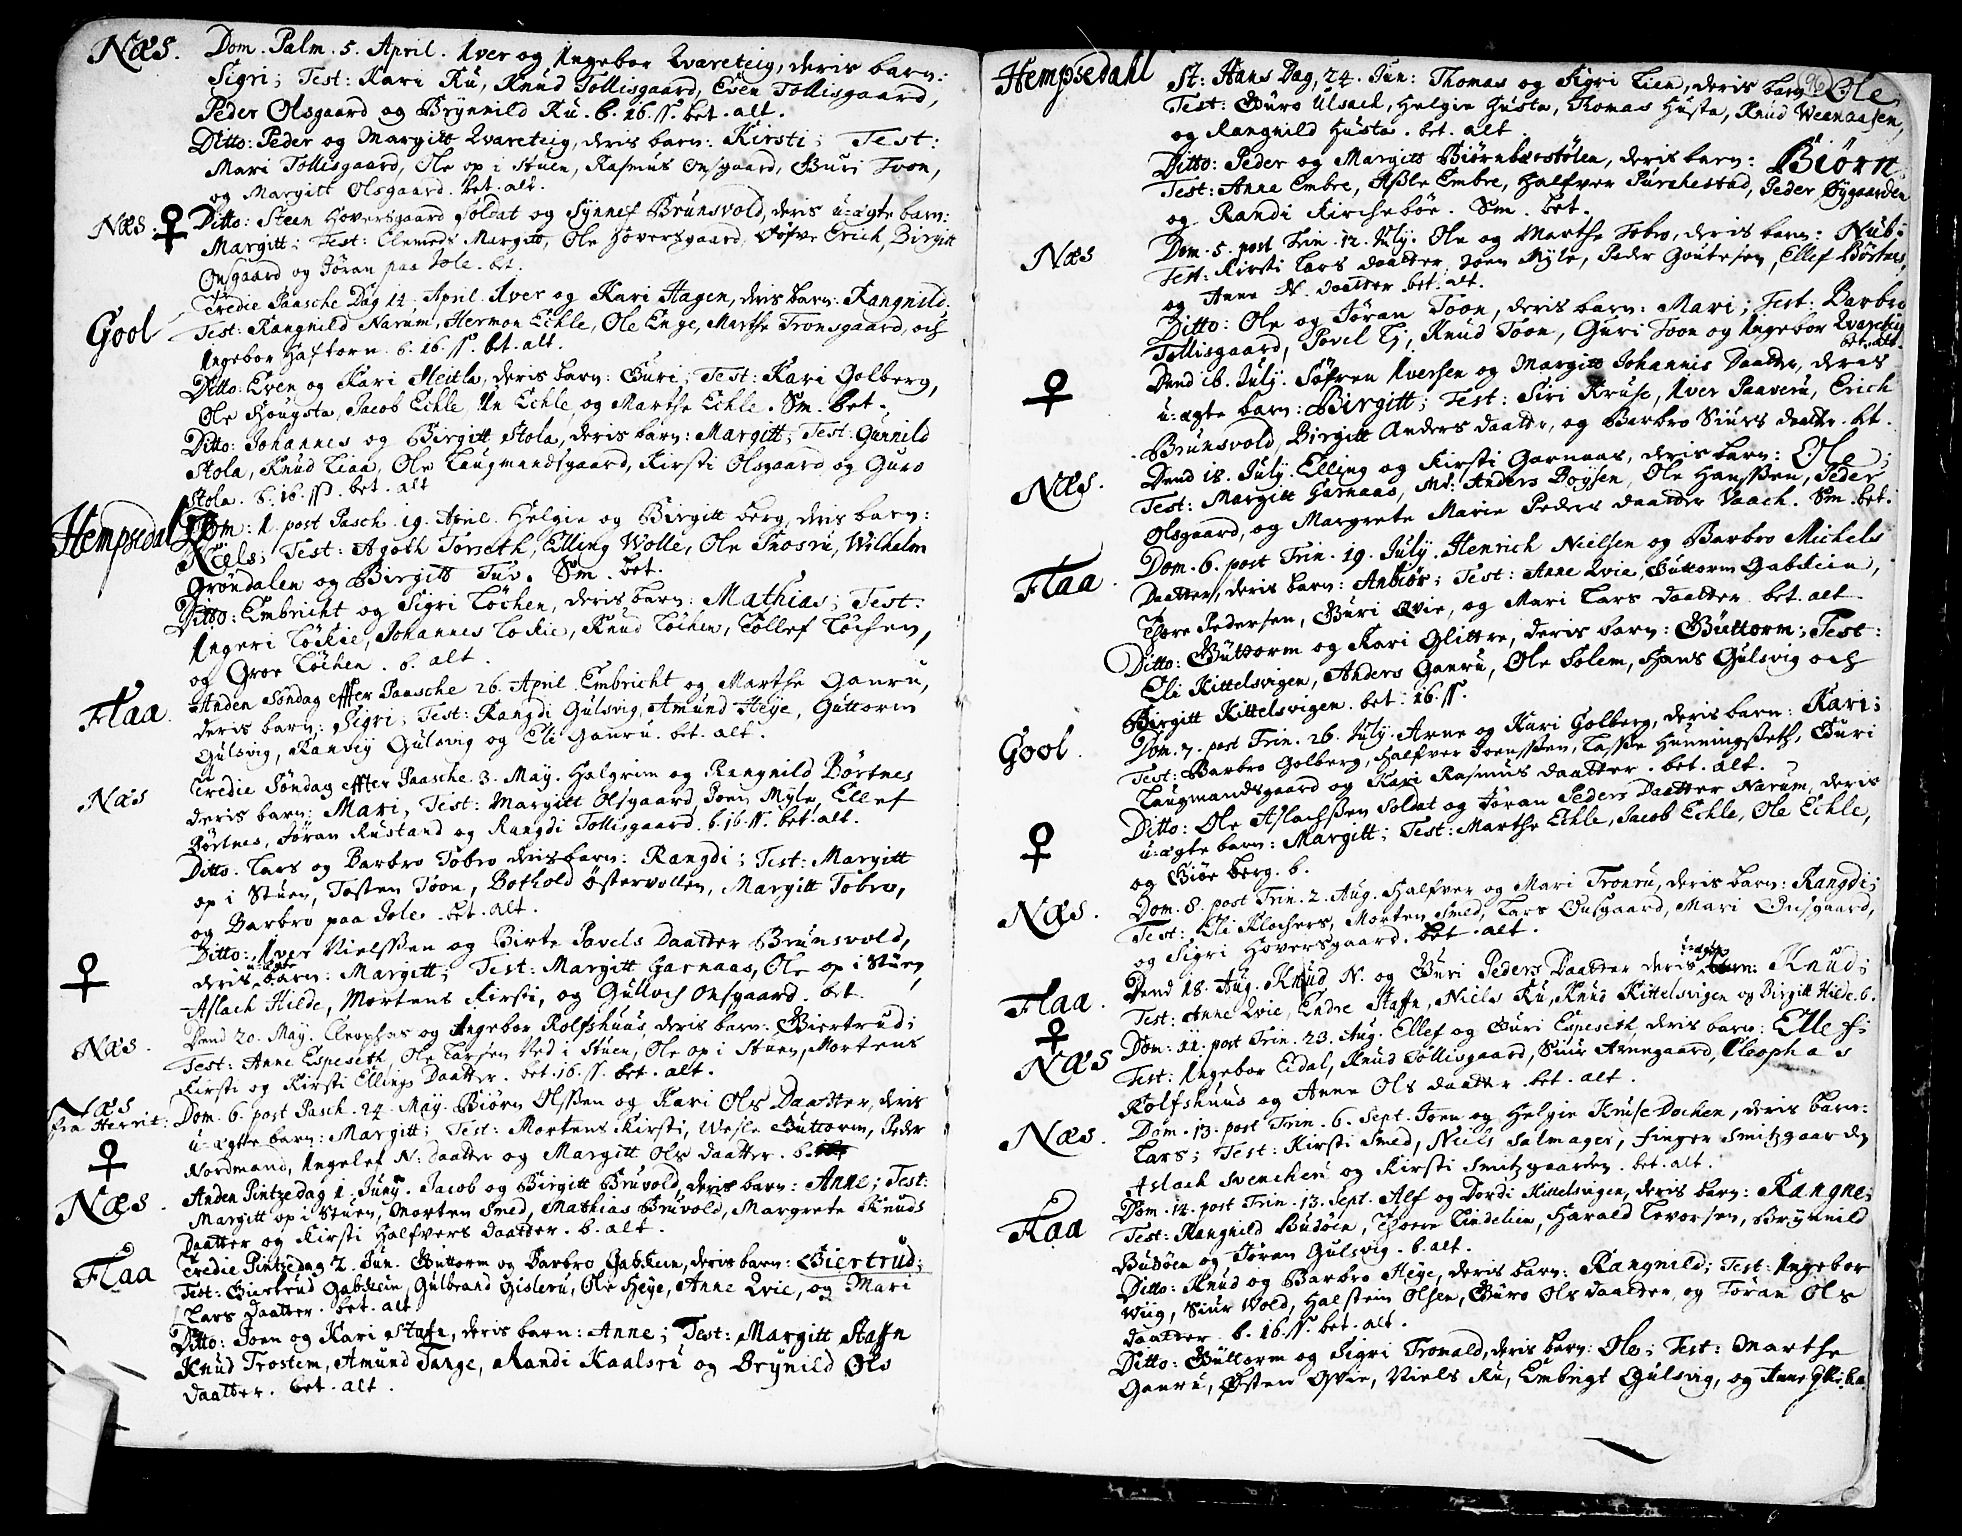 Næs. Dom. Palm. 5. April. Iver og Ingebor Qvareteig, deris barn:
Sigri; Test: Kari Ru, Knud Tollisgaard, Even Tollisgaard,
Peder Olsgaard og Brynnild Ru. b. 16. ß. bet. alt.
Ditto: Peder og Margitt Qvareteig, deris barn: Kirsti; Test:
Mari Tollisgaard, Ole op i Stuen, Rasmus Onsgaard, Guri Toon,
og Margitt Olsgaard. bet. alt.
Næs. ♀ Ditto: Steen Hoversgaard Soldat og Synnef Brunsvold, deris u:ægte barn:
Margitt; Test: Clemeds Margitt, Ole Hoversgaard, Erich, Birgitt
Onsgaard og Jøran paa Jole. bet.
Gool Tredie Paasche Dag 14. April. Iver og Kari Hagen, deris barn: Rangnild.
Test: Rangnild Narum, Hermon Echle, Ole Enge, Marthe Tronsgaard, och
Ingebor Haftorn. b. 16. ß. bet. alt.
Ditto: Even og Kari Meitla, deris barn: Guri; Test: Kari Golberg,
Ole Hougsta, Jacob Echle, Echle, og Marthe Echle. Sm. bet.
Ditto: Johannes og Birgitt Stola, deris barn: Margitt; Test: Gunnild
Stola, Knud Liaa, Ole Laugmandsgaard, Kirsti Olsgaard og Guro
Stola. b. 16. ß. bet. alt
Hempsedal Dom: 1. post Pasch. 19. April. Helgie og Birgitt berg, deris barn:
Niels; Test: Agoth Torseth, Elling Wolle, Ole, Wilhelm
Grøndalen og Birgitt Tuv. Sm. bet.
Ditto: Embricht og Sigri Løchen, deris barn: Mathias; Test:
Ingeri Løkie, Johannes Løkie, Knud Løchen, Tollef Løchen,
og Groe Løchen. b. alt.
Flaa. Anden Søndag effter Paasche 26. April. Embricht og Marthe Ganru,
deris barn: Sigri; Test: Rangdi Gulsvig, Amund Heye, Guttorm
Gulsvig, Ranvig Gulsvig og Eli Ganru. bet. alt.
Næs Tredie Søndag effter Paasche. 3. May. Halgrim og Rangnild Børtnes
deris barn: Mari; Test: Margitt Olsgaard, Joen Myle, Ellef
Børtnes, Jøran Rustand og Rangdi Tollisgaard. b. 16. ß. bet. alt.
Ditto. Lars og Barbro Tobro deris barn: Rangdi; Test: Margitt
op i Stuen, Tosten Toon, Bothold Østervollen, Margitt Tobro,
og Barbro paa Jole. bet. alt.
♀ Ditto: Iver Nielssen og Birte Povels Daatter Brunsvold,
deris u:ægte barn: Margitt; Test: Margitt Garnaas, Ole op i Stuen,
Aslach Hilde, Mortens Kirsti, og Gulloch Onsgaard. bet.
Næs. Dend 20. May. Cleophas og Ingebor Rolfshuus, deris barn: Giertrud;
Test: Anne Espeseth, Ole Larsen Ned i Stuen, Ole op i Stuen, Mortens
Kirsti og Kirsti Ellings Daatter. bet. 16. ß. bet. alt.
Næs
fra Herrit: ♀ Dom. 6. post Pasch. 24. May. Biørn Olssen og Kari Ols Daatter, deris
u:ægte barn: Margitt; Test: Mortens Kirsti, Wesle Guttorm, Peder
Nordmand, Ingelef N: daatter og Margitt Ols daatter. b.
Næs. Anden Pintzedag 1. Juny. Jacob og Birgitt Bruvold, deris barn: Anne; Test:
Margitt op i Stuen, Morten Smed, Mathias Bruvold, Margrete Knuds
Daatter og Kirsti Halfvers daatter. b. alt.
Flaa Tredie Pintzedag 2. Jun. Guttorm og Barbro Gabstein, deris barn: Giertrud;
Test: Giertrud Gabstein, Gulbrand Gisleru, Ole Heye, Anne Qvie, og Mari
Lars daatter. bet. alt
Ditto: Joen og Kari Stafn, deris barn: Anne; Test: Margitt Stafn
Knud Trostem, Amund Tange, Randi Kaalsru og Brynild Ols
daatter. bet. alt.
96
Hempsedahl St: Hans Dag, 24. Jun: Thomas og Sigri Lien, deris barn: Ole,
Test: Guro Ulsach, Helgie Husta, Thomas Husta, Knud Weenaasen,
og Rangnild Husta. bet. alt.
Ditto: Peder og Margitt Biørnbærstølen, deris barn: Biørn,
Test: Anne Embre, Aßle Embre, Halfver Purchestad, Peder Øygaarden
og Randi Kirchebøe. Sm. bet.
Næs Dom. 5. post Trin. 12. July. Ole og Marthe Tobro, deris barn: Nub:
Test: Kirsti Lars daatter, Joen Myle, Peder Goutesen, Ellef Børtnes,
og Anne N. daatter. bet. alt.
Ditto: Ole og Jøran Toon, deris barn: Mari; Test. Barbro
Tollisgaard, Povel Ej, Knud Toon, Guri Toon og Ingebor Qvareteig
bet. alt.
♀ Dend 16. July. Søfren Iversen og Margitt Johannis Daatter, deris
u:ægte barn: Birgitt; Test: Siri Kruse, Iver Paaveru, Erich
Brunsvold, Birgitt Anders daatter, og Barbro Siurs daatter. bet.
Næs. Dend 18. July. Elling og Kirsti Garnaas, deris barn: Ole;
Test: Margitt Garnaas, Mr: Anders Boysen, Ole Hanssen, Peder
Olsgaard, og Margrete Marie Peders daatter Vaach. Sm. bet.
Flaa. Dom. 6. post Trin. 19. July. Henrich Nielsen og Barbro Michels
Daatter, deris barn: Anbiør; Test: Anne Qvie, Guttorm Gabstein,
Thore Pedersen, Guri Qvie, og Mari Lars daatter. bet. alt
Ditto: Guttorm og Kari Glittre, deris barn: Guttorm; Test:
Eli Kittelsvigen, Anders Ganru, Ole Solem, Hans Gulsvig och
Birgitt Kittelsvigen. bet. 16. ß.
Gool. Dom. 7. post Trin. 26. July. Arne og Kari Golberg, deris barn: Kari;
Test: Barbro Golberg, Halfver Joenssen, Lasse Hunningseth, Guri
Laugmandsgaard og Kari Rasmus daatter. bet. alt.
♀ Ditto: Ole Aslachssen Soldat og Jøran Peders Daatter Narum, deris
u:ægte barn: Margitt; Test: Marthe Echle, Jacob Echle, Ole Echle,
og Giøe berg. b.
Næs. Dom. 8. post Trin. 2. Aug. Halfver og Mari Tronru, deris barn: Rangdi;
Test: Eli Klochers, Morten Smed, Lars Onsgaard, Mari Onsgaard,
og Sigri Hoversgaard. bet. alt.
Flaa. ♀ Dend 18. Aug. Knud N. og Guri Peders Daatter deris u:ægte barn: Knud;
Test: Anne Qvie, Endre Stafn, Niels Ru, Knud Kittelsvigen og Birgitt Hilde. b.
Næs Dom: 11. post Trin. 23. Aug. Ellef og Guri Espeseth, deris barn: Ellef:
Test: Ingebor Eidal, Knud Tollisgaard, Siur Arnegaard, Cleophas
Rolfshuus og Anne Ols daatter. bet. alt.
Næs. Dom. 13. post Trin. 6. Sept. Joen og Helgie Kruse Dochen, deris barn:
Lars; Test: Kirsti Smed, Niels Salmager, Finger Smitzgaarden
Aslach Svencheru og Kirsti Smitzgaarden. bet. alt.
Flaa Dom. 14. post Trin. 13. Sept. Alf og Dordi Kittelsvigen, deris barn: Rangne;
Test: Rangnild Budøen, Thore Lindelien, Harald Levorsen, Brynnild
Budøen og Jøran Gulsvig. b. alt.
Ditto: Knud og Barbro Heye, deris barn: Rangnild; Test: Ingebor
Wiig, Siur Wold, Halstein Olsen, Guro Ols daatter og Jøran Ols
daatter. b. 16. ß. bet. alt.
Ditto: Guttorm og Sigri Tromald, deris barn: Ole; Test: Marthe
Ganru, Østen Qvie, Niels Ru, Embrigt Gulsvig, og Anne